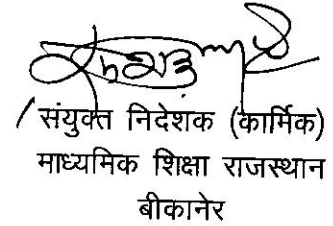 / संयुक्त निदेशक (कार्मिक)
माध्यमिक शिक्षा राजस्थान
बीकानेर